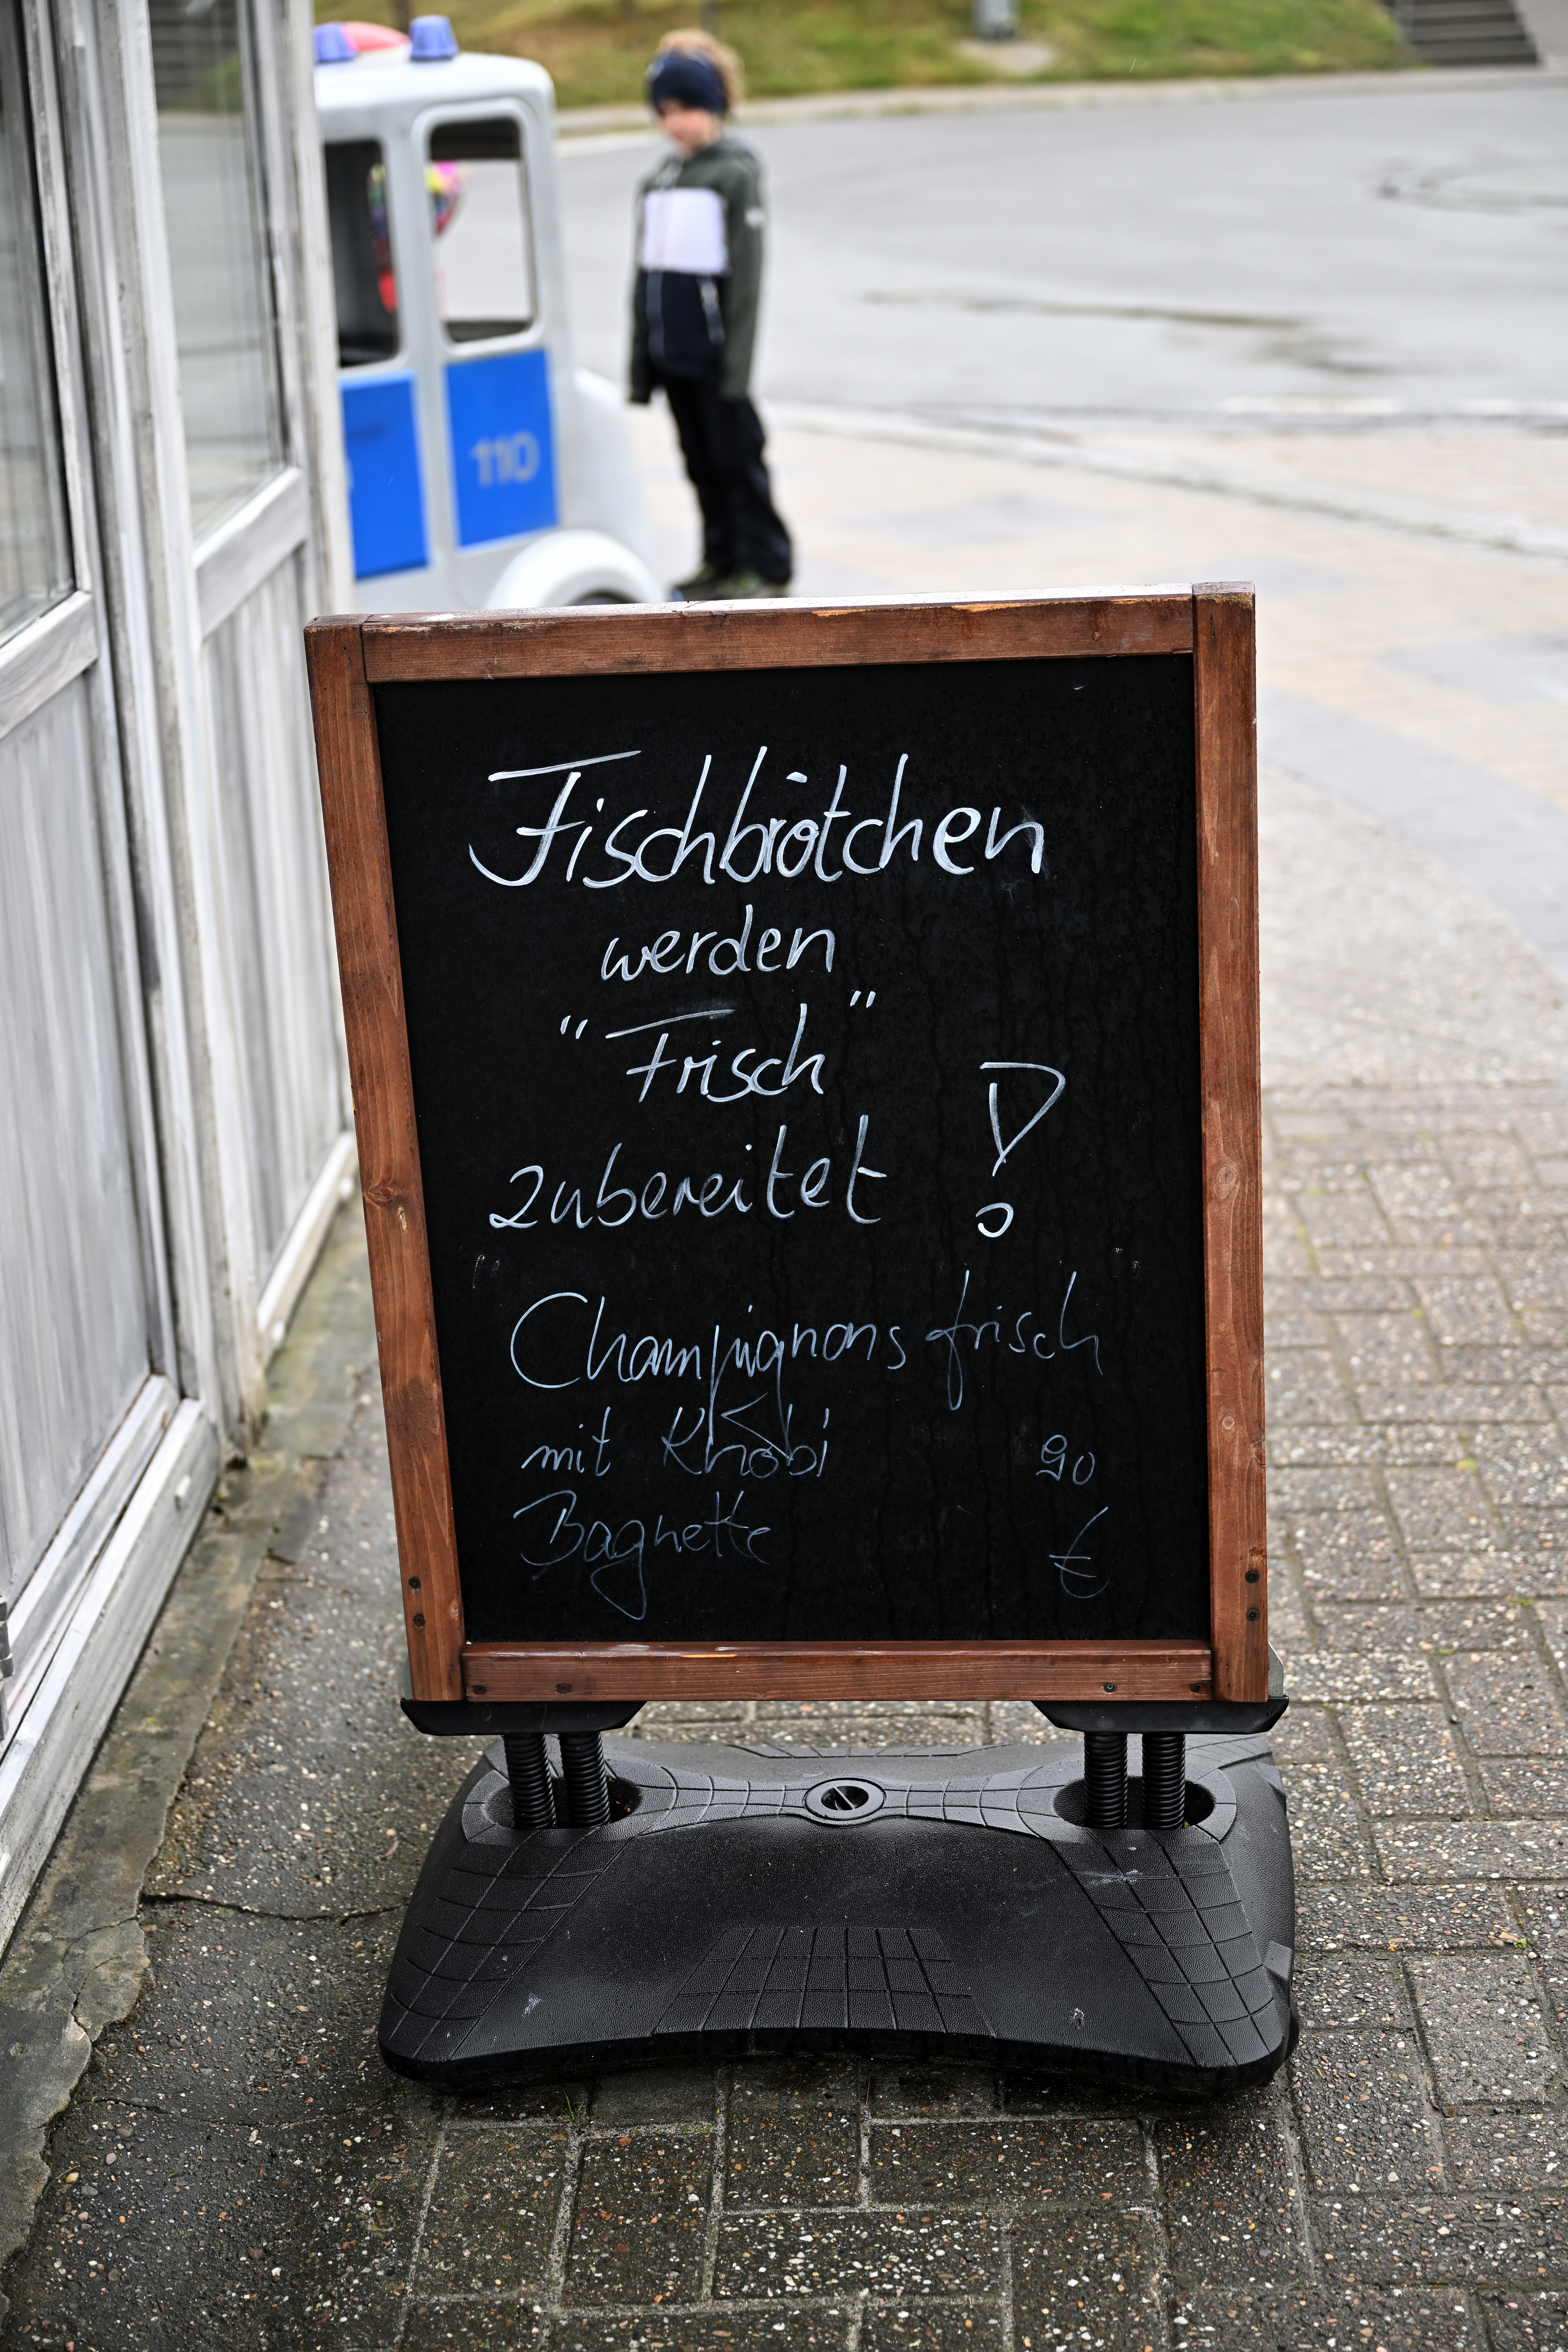 110
Fischbrötchen
werden
"Frisch"
zubereitet !
Champignons frisch
mit Knobi
Baguette
€